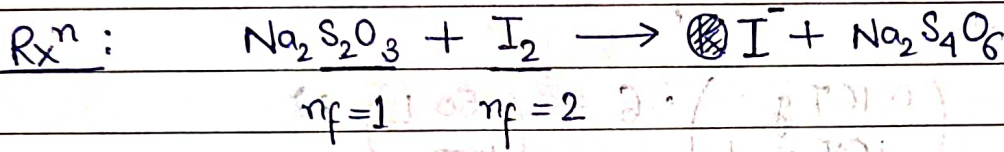 Rxⁿ : Na₂S₂O₃ + I₂ ⟶ I⁻ + Na₂S₄O₆
n_f = 1 n_f = 2